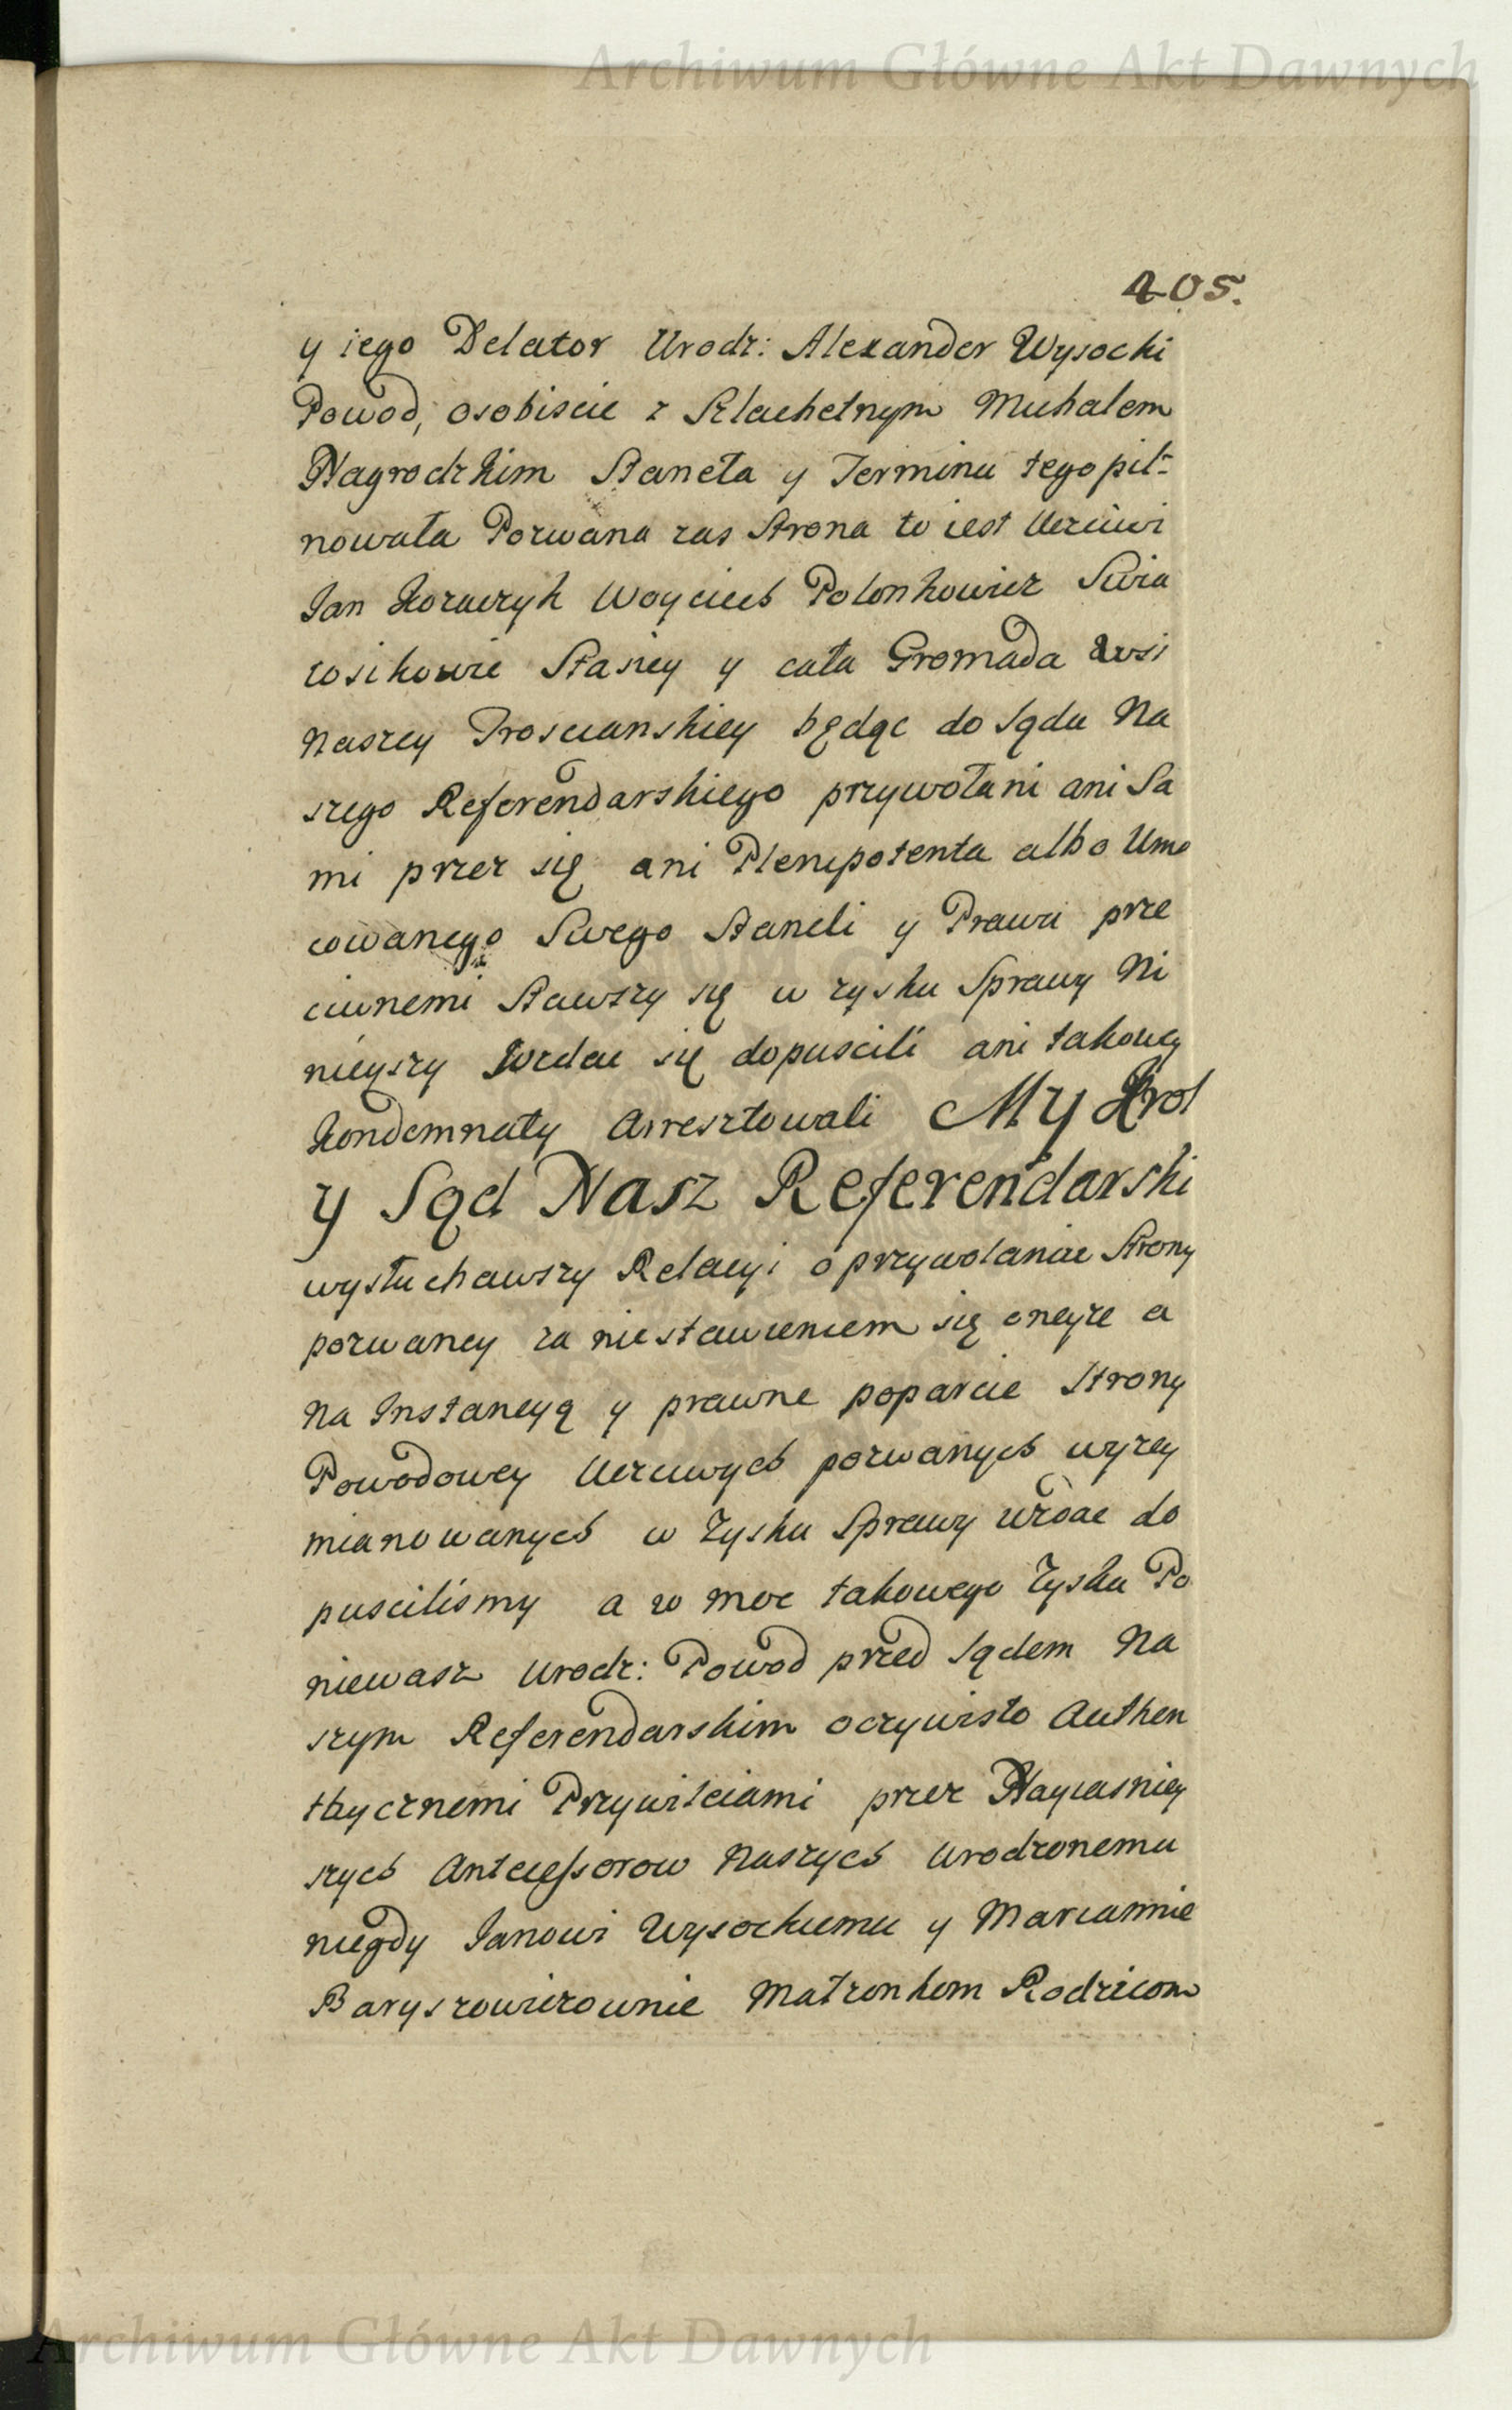 Archiwum Główne Akt Dawnych
405.
y iego Delator Urodz: Alexander Wysocki
Powod, osobiscie z Szlachetnym Michałem
Nagrodzkim Staneła y Terminu tego pil-
nowała Pozwana zas Strona to iest Uczciwi
Jan Woyciech Polonkowicz
Stasiey y cała Gromada wsi
Naszey Troscianskiey będąc do Sądu Na
szego Referendarskiego przywołani ani Sa
mi przez się ani Plenipotenta albo Umo
cowanego Swego Staneli y Prawu prze
ciwnemi Stawszy się w zysku Sprawy Ni
nieyszy wzdac się dopuscili ani takowey
Kondemnaty Arresztowali My Krol
y Sąd Nasz Referendarski
wysłuchawszy Relacyi o przywołanie Strony
pozwaney za niestawieniem się oneyze a
na Instancyą y prawne poparcie Strony
Powodowey Uczciwych pozwanych wyzey
mianowanych w Zysku Sprawy wzdac do
puscilismy a w moc takowego Zysku Po
niewasz Urodz: Powod przed Sądem Na
szym Referendarskim oczywisto Authen
tycznemi Przywileiami przez Nayiasniey
szych Antecessorow Naszych Urodzonemu
niegdy Janowi Wysockiemu y Maryannie
Baryszowiczownie Małzonkom Rodzicom
Archiwum Główne Akt Dawnych